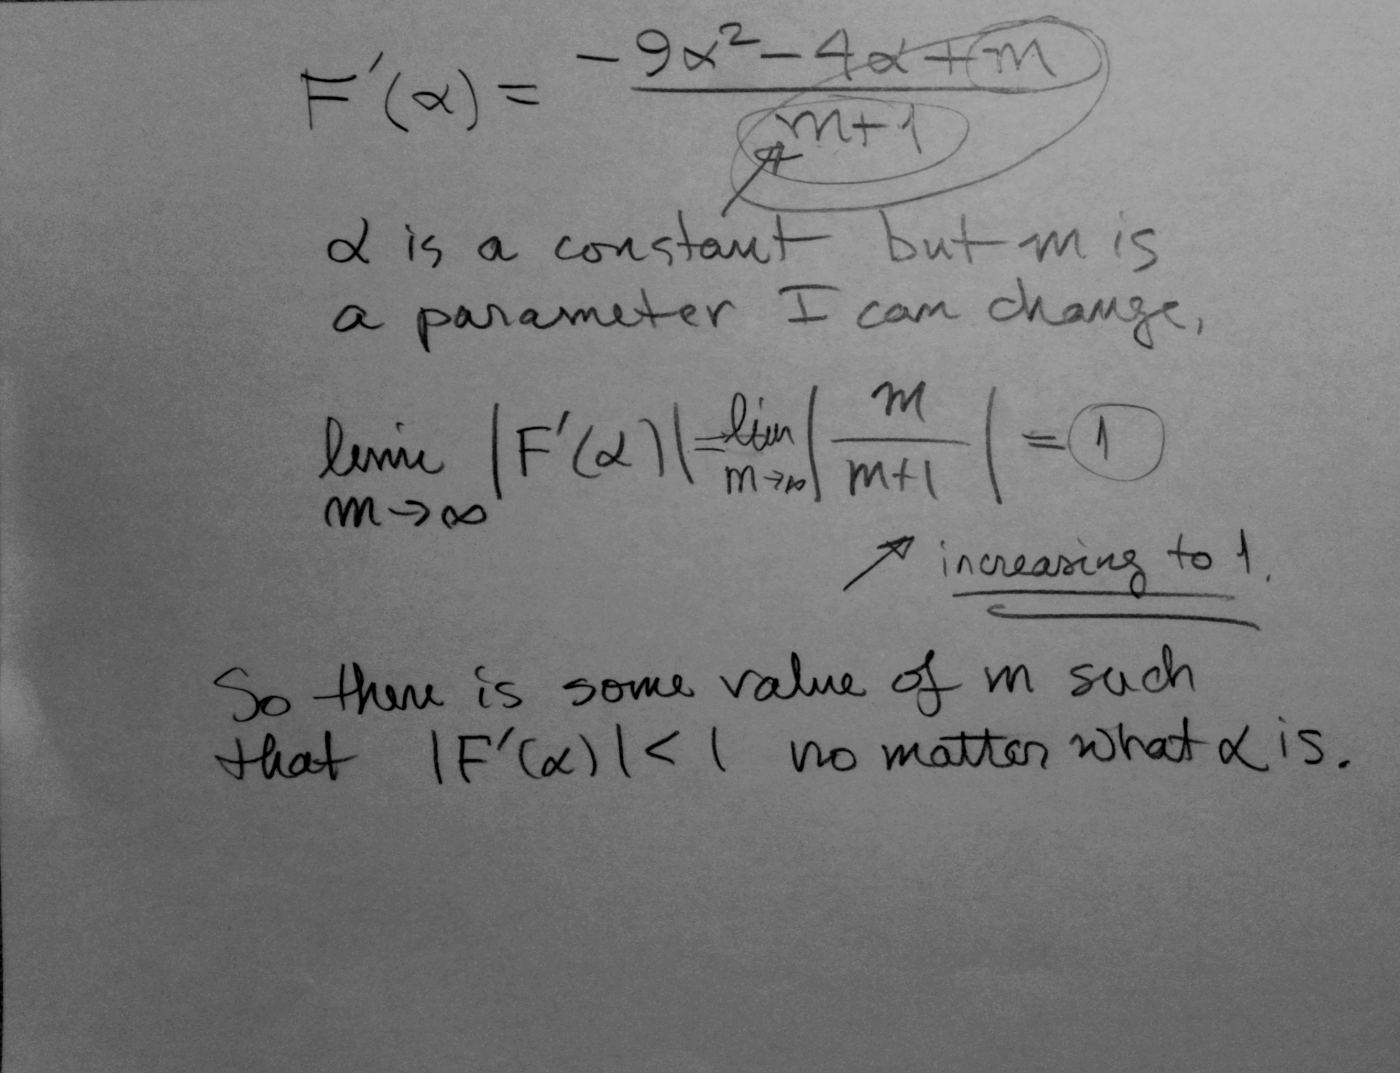 F'(α) = (-9α² - 4α + m) / (m+1)
α is a constant but m is
a parameter I can change,
lim m→∞ |F'(α)| = lim m→∞ | m / (m+1) | = 1
increasing to 1.
So there is some value of m such
that |F'(α)| < 1 no matter what α is.